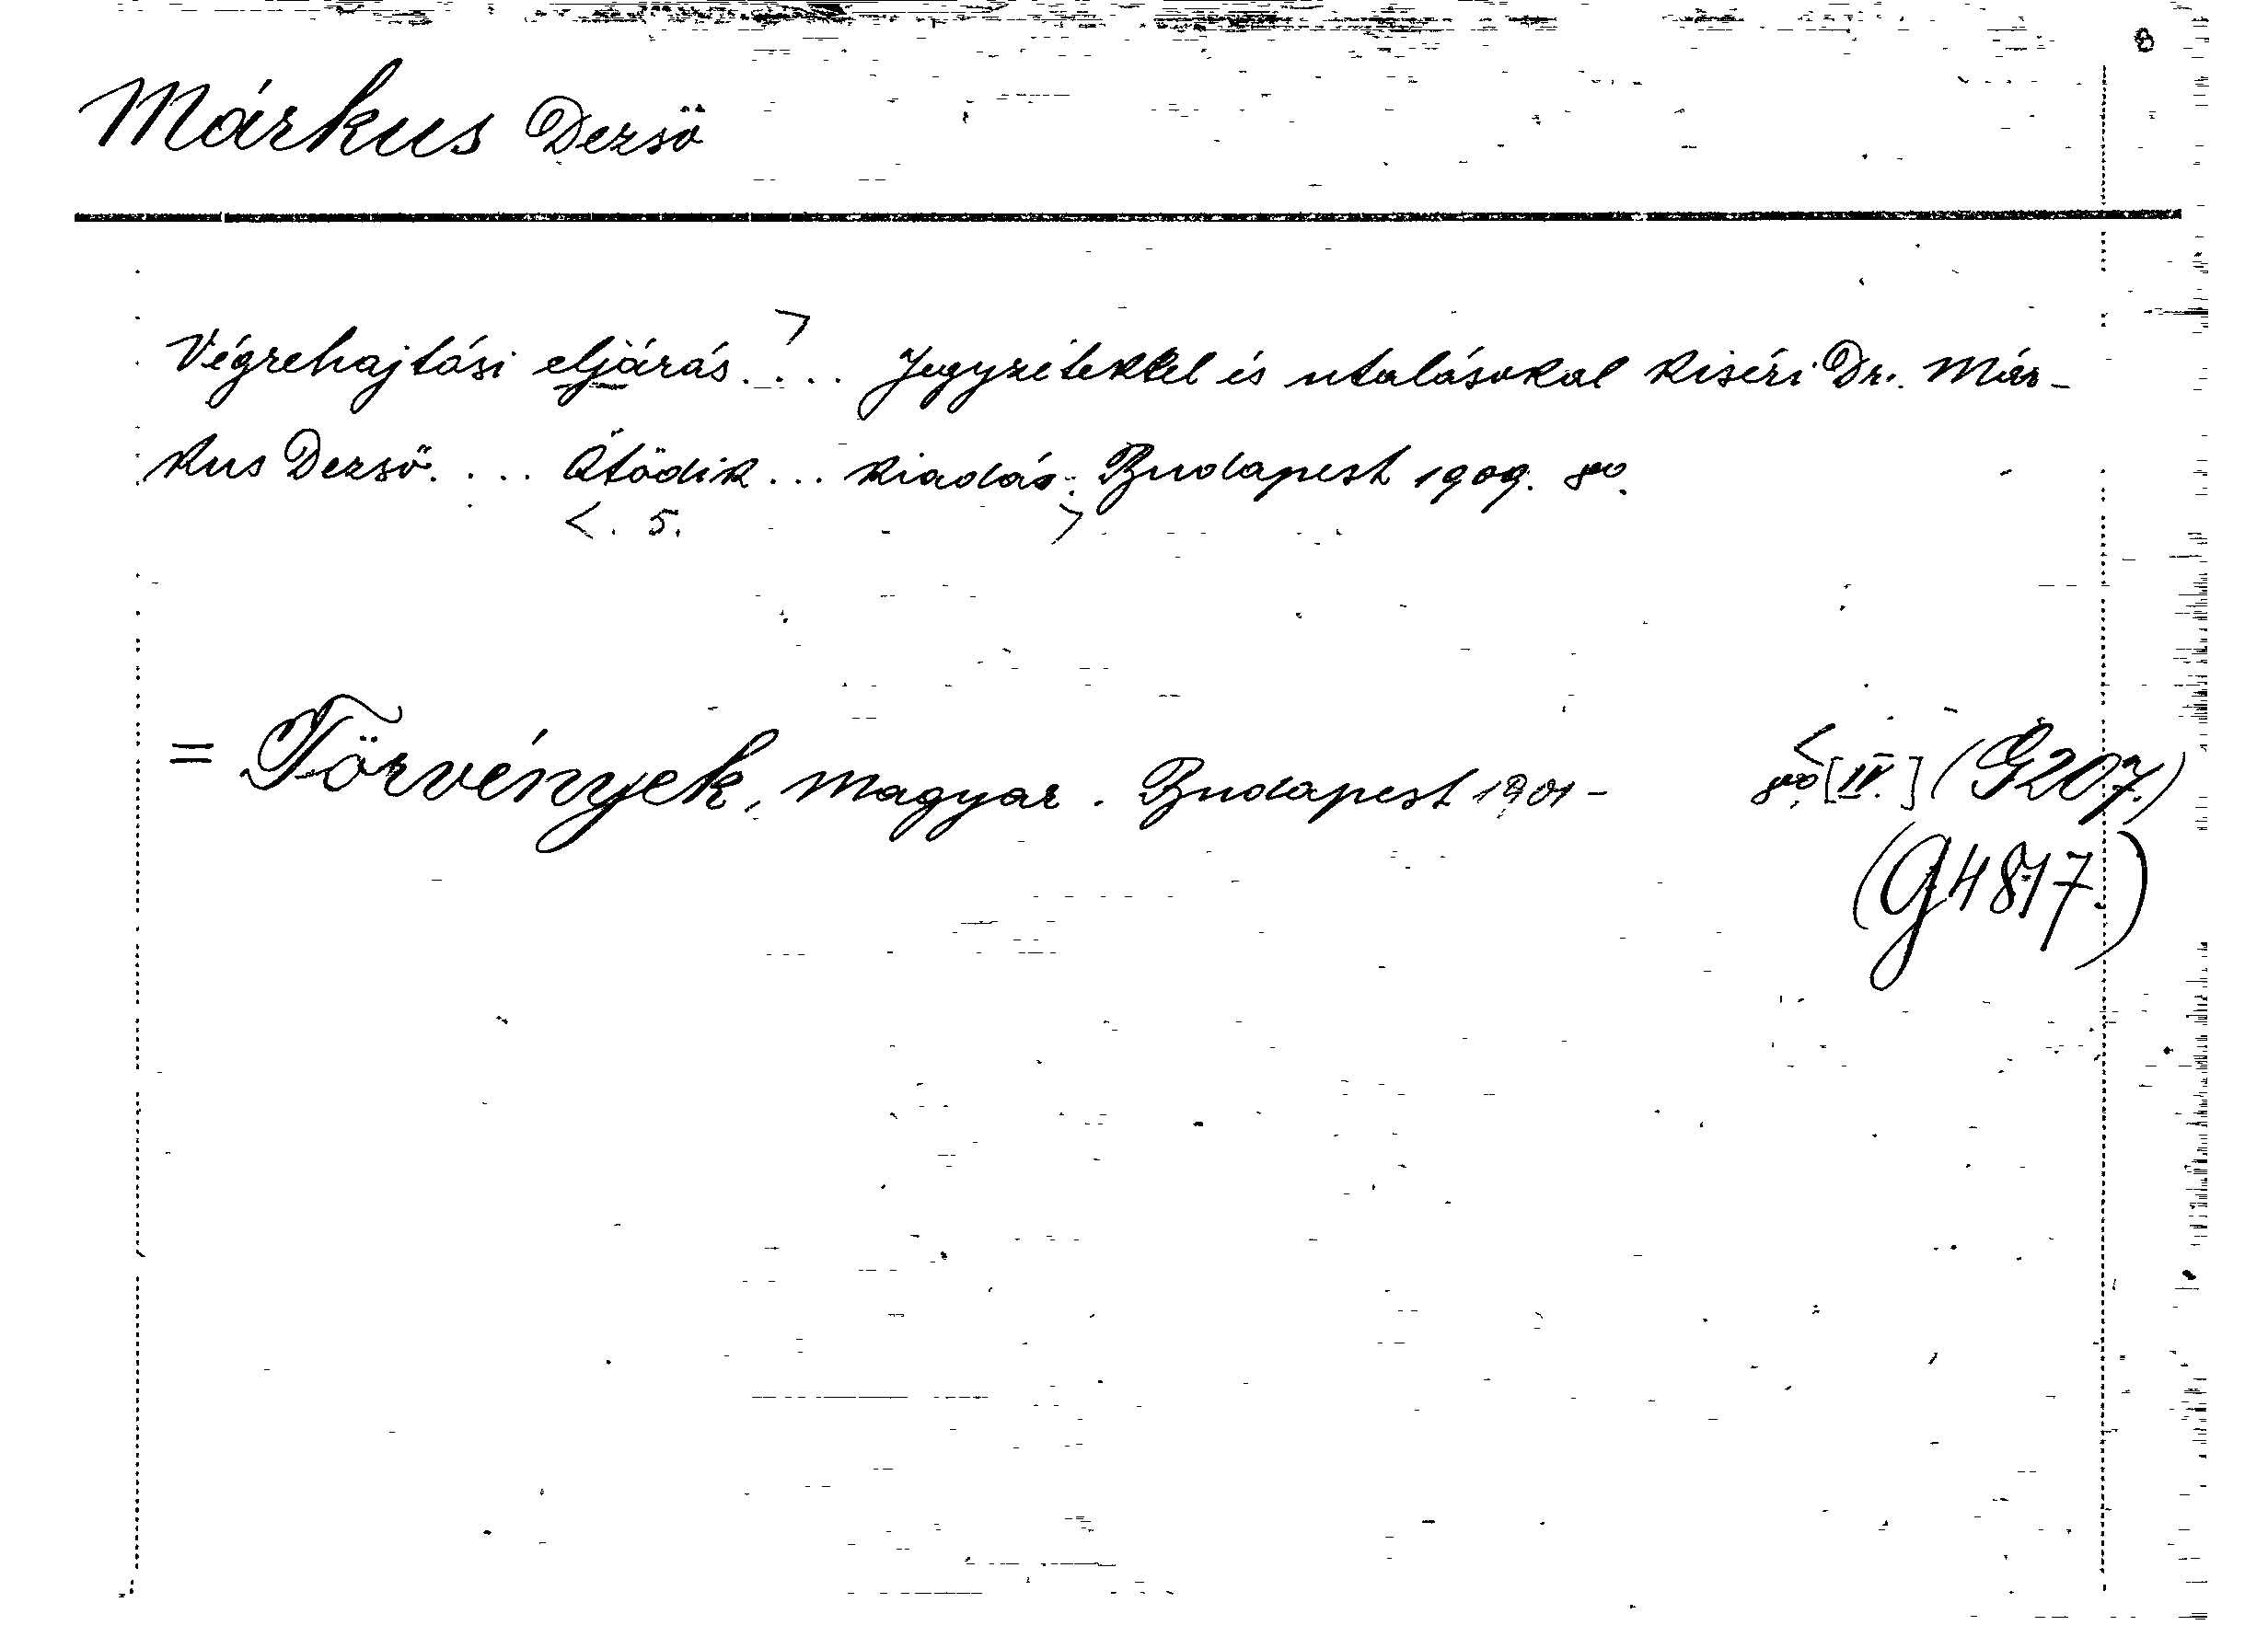 8
Márkus Dezső
Végrehajtási eljárás. > ... Jegyzetekkel és utalásokal kiséri Dr. Már-
kus Dezső. ... Ötödik ... kiadás. Budapest 1909. 8o.
< . 5. >
= Törvények, magyar. Budapest 1901- 8o. < [IV.] (G207.)
(G4817.)